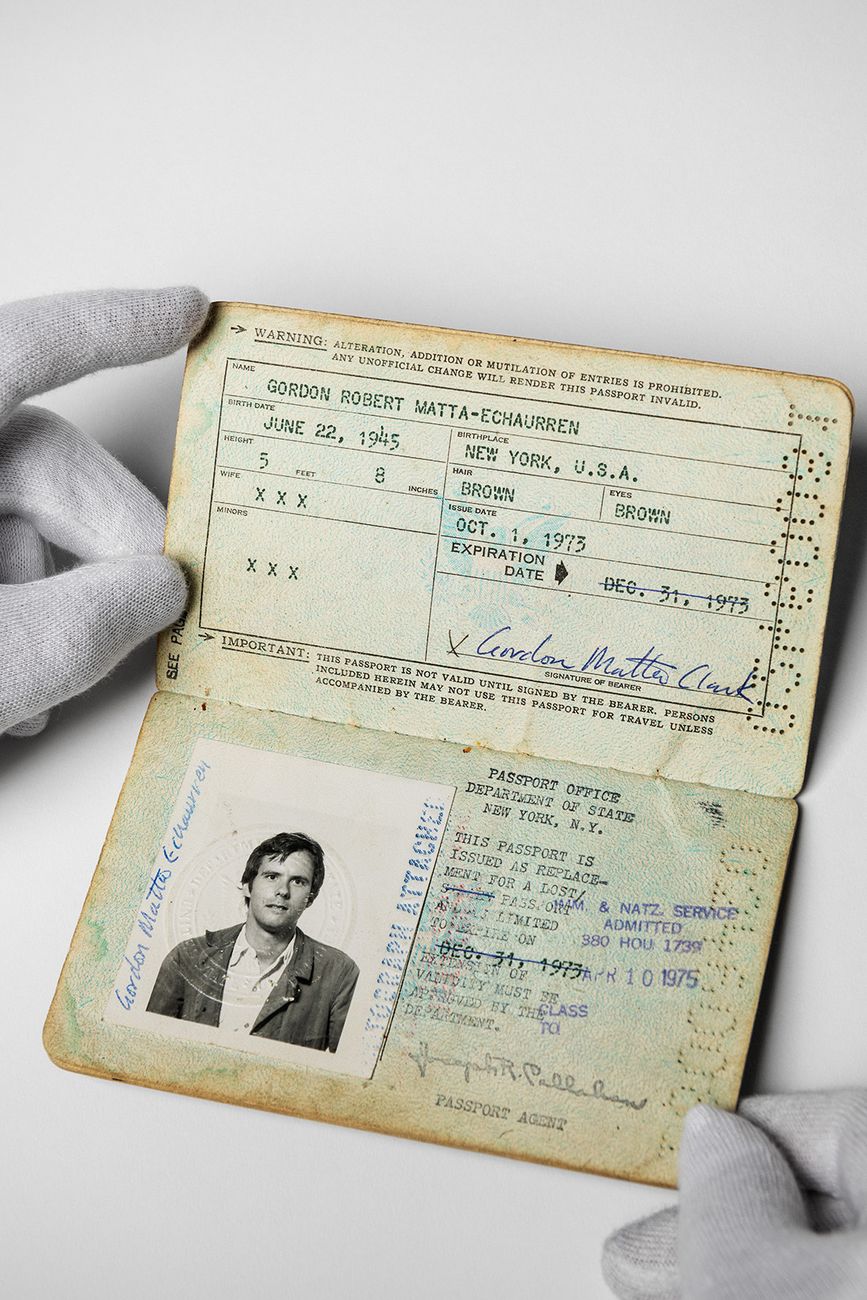 → WARNING: ALTERATION, ADDITION OR MUTILATION OF ENTRIES IS PROHIBITED.
ANY UNOFFICIAL CHANGE WILL RENDER THIS PASSPORT INVALID.
NAME
GORDON ROBERT MATTA-ECHAURREN
BIRTH DATE
JUNE 22, 1945
BIRTHPLACE
NEW YORK, U.S.A.
HEIGHT
5 FEET 8 INCHES
HAIR
BROWN
EYES
BROWN
WIFE
X X X
ISSUE DATE
OCT. 1, 1973
MINORS
X X X
EXPIRATION
DATE
DEC. 31, 1973
X Gordon Matta Clark
SIGNATURE OF BEARER
SEE
→ IMPORTANT: THIS PASSPORT IS NOT VALID UNTIL SIGNED BY THE BEARER. PERSONS
INCLUDED HEREIN MAY NOT USE THIS PASSPORT FOR TRAVEL UNLESS
ACCOMPANIED BY THE BEARER.
Gordon Matta Echaurren
PASSPORT OFFICE
DEPARTMENT OF STATE
NEW YORK, N.Y.
THIS PASSPORT IS
ISSUED AS REPLACE-
MENT FOR A LOST/
PASSPORT
LIMITED
TO EXPIRE ON
DEC. 31, 1973.
EXTENSION OF
VALIDITY MUST BE
APPROVED BY THE
DEPARTMENT.
IMM. & NATZ. SERVICE
ADMITTED
380 HOU 1739
APR 10 1975
CLASS
TO
Joseph R. Callahan
PASSPORT AGENT